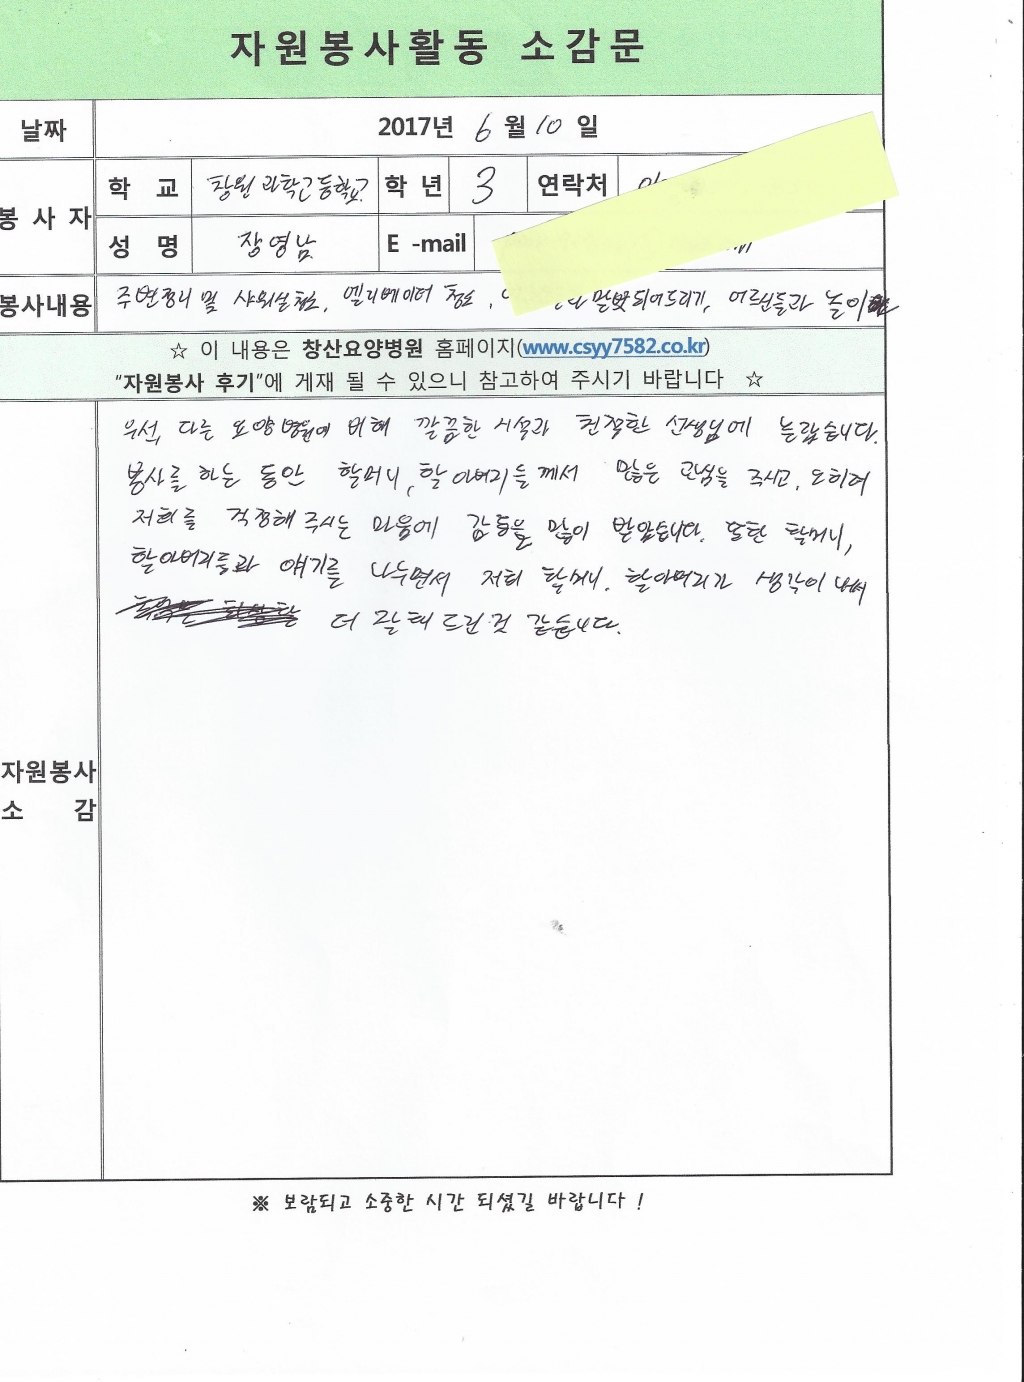 자원봉사활동 소감문
날짜 2017년 6 월 10 일
봉사자
학 교 창원과학고등학교 학년 3 연락처
성 명 장영남 E -mail
봉사내용 주변정리 및 샤워실청소, 엘리베이터 청소, 말벗되어드리기, 어르신들과 놀이
☆ 이 내용은 창산요양병원 홈페이지(www.csyy7582.co.kr)
“자원봉사 후기”에 게재 될 수 있으니 참고하여 주시기 바랍니다 ☆
자원봉사
소 감
우선, 다른 요양병원에 비해 깔끔한 시설과 친절한 선생님에 놀랐습니다.
봉사를 하는 동안 할머니, 할아버지들께서 많은 관심을 주시고, 오히려
저희를 걱정해 주시는 마음에 감동을 많이 받았습니다. 또한 할머니,
할아버지들과 얘기를 나누면서 저희 할머니, 할아버지가 생각이 나서
더 잘해 드린것 같습니다.
※ 보람되고 소중한 시간 되셨길 바랍니다 !